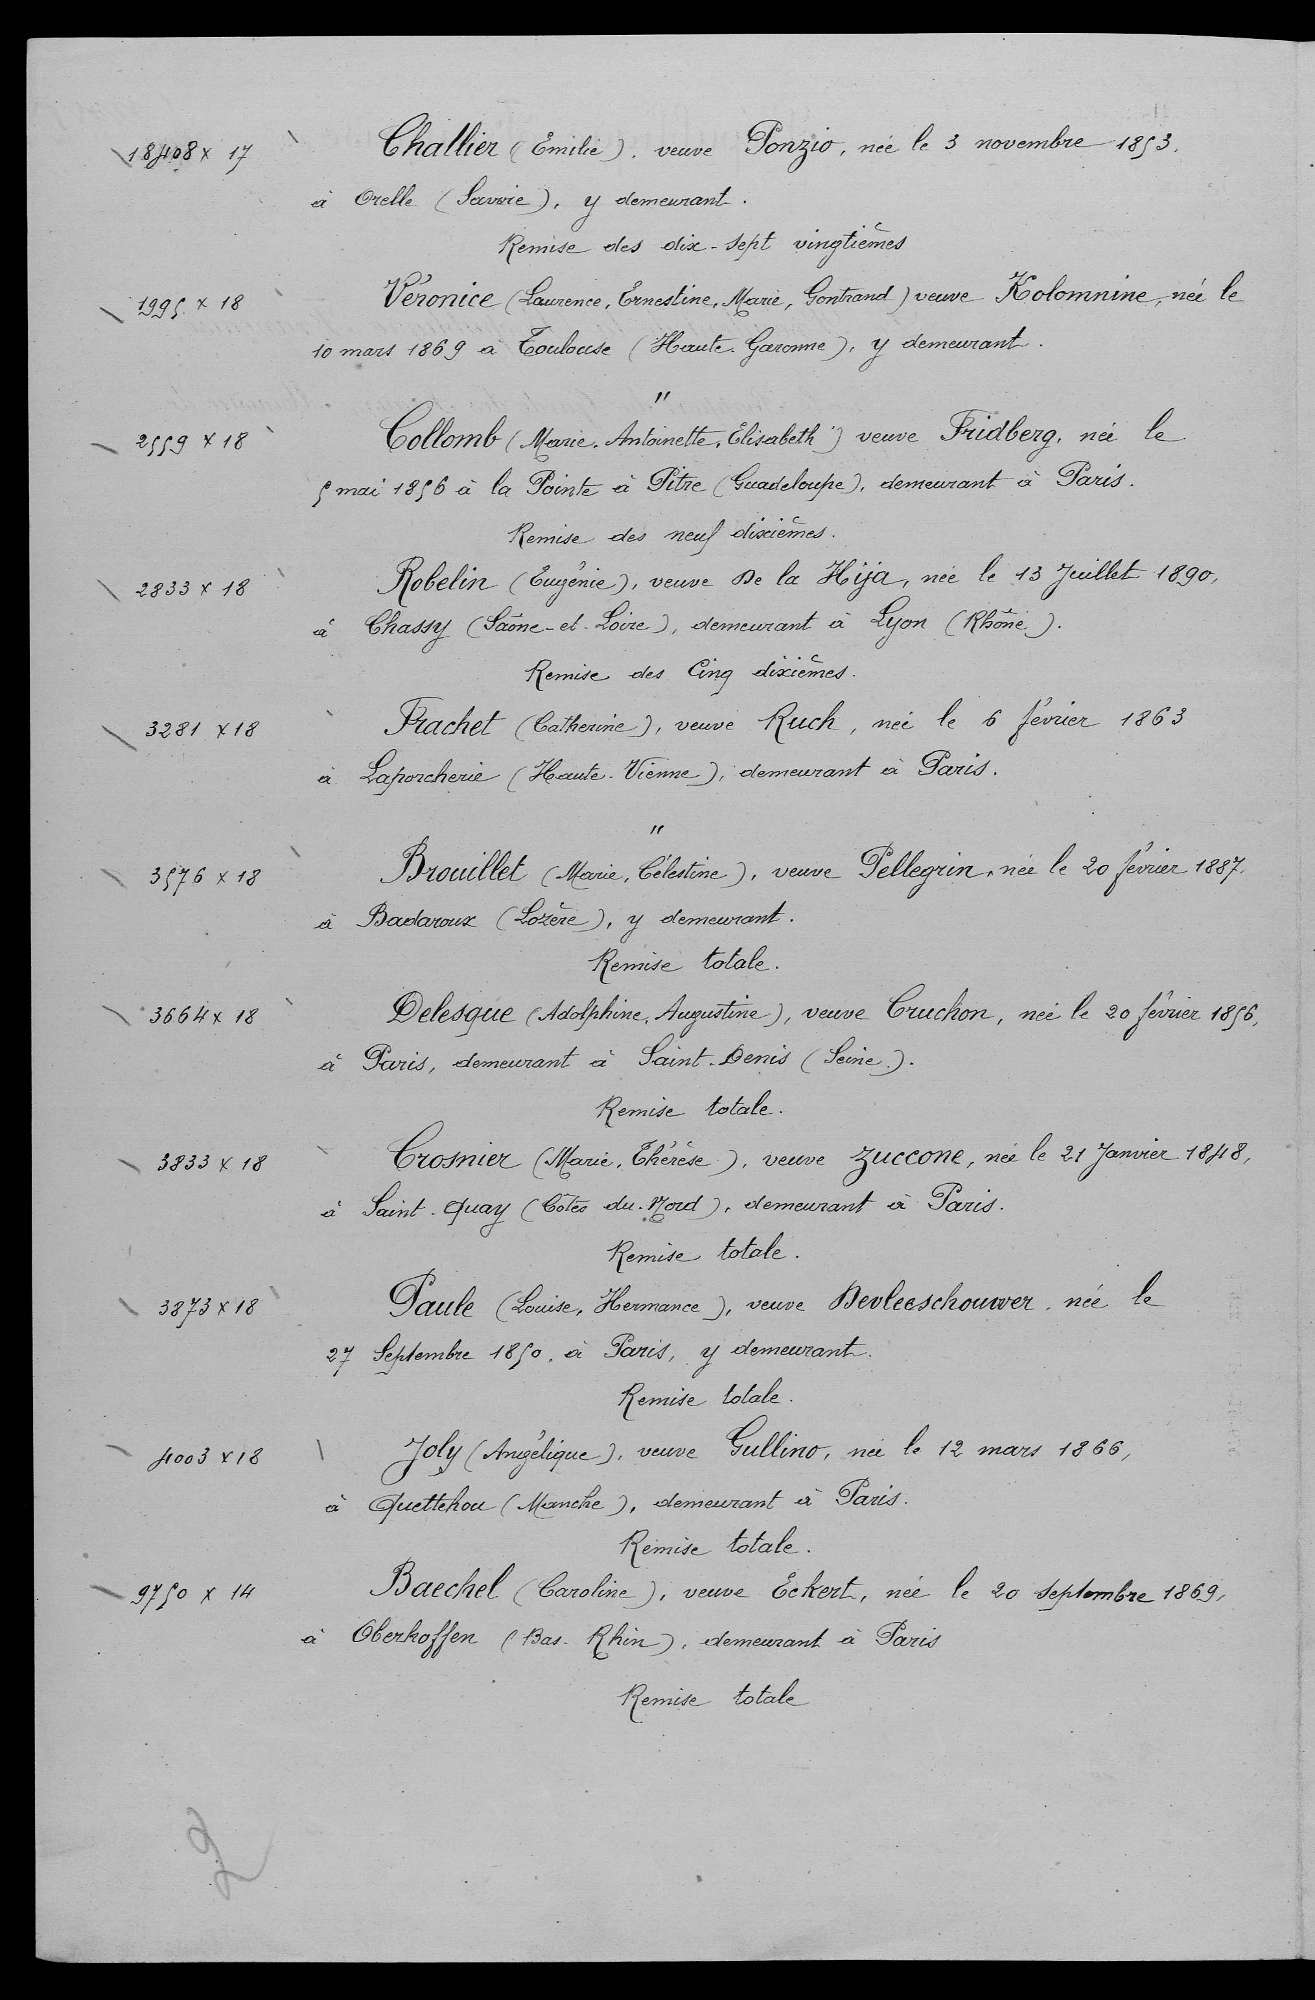 18408 x 17 Challier (Emilie), veuve Ponzio, née le 3 novembre 1853,
à Orelle (Savoie), y demeurant.
Remise des dix-sept vingtièmes
1995 x 18 Véronice (Laurence, Ernestine, Marie, Gontrand) veuve Kolomnine, née le
10 mars 1869 à Toulouse (Haute-Garonne), y demeurant.
"
2559 x 18 Collomb (Marie, Antoinette, Elisabeth) veuve Fridberg, née le
5 mai 1856 à la Pointe à Pitre (Guadeloupe), demeurant à Paris.
Remise des neuf dixièmes.
2833 x 18 Robelin (Eugénie), veuve De la Hija, née le 13 Juillet 1890,
à Chassy (Saône-et-Loire), demeurant à Lyon (Rhône).
Remise des Cinq dixièmes.
3281 x 18 Frachet (Catherine), veuve Ruch, née le 6 février 1863
à Laporcherie (Haute-Vienne), demeurant à Paris.
"
3576 x 18 Brouillet (Marie, Célestine), veuve Pellegrin, née le 20 février 1887,
à Badaroux (Lozère), y demeurant.
Remise totale.
3664 x 18 Delesque (Adolphine, Augustine), veuve Cruchon, née le 20 février 1856,
à Paris, demeurant à Saint-Denis (Seine).
Remise totale.
3833 x 18 Crosnier (Marie, Thérèse), veuve Zuccone, née le 21 Janvier 1848,
à Saint-Quay (Côtes-du-Nord), demeurant à Paris.
Remise totale.
3873 x 18 Paule (Louise, Hermance), veuve Devleeschouwer, née le
27 Septembre 1850, à Paris, y demeurant.
Remise totale.
4003 x 18 Joly (Angélique), veuve Gullino, née le 12 mars 1866,
à Quettehou (Manche), demeurant à Paris.
Remise totale.
9750 x 14 Baechel (Caroline), veuve Eckert, née le 20 septembre 1869,
à Oberhoffen (Bas-Rhin), demeurant à Paris
Remise totale